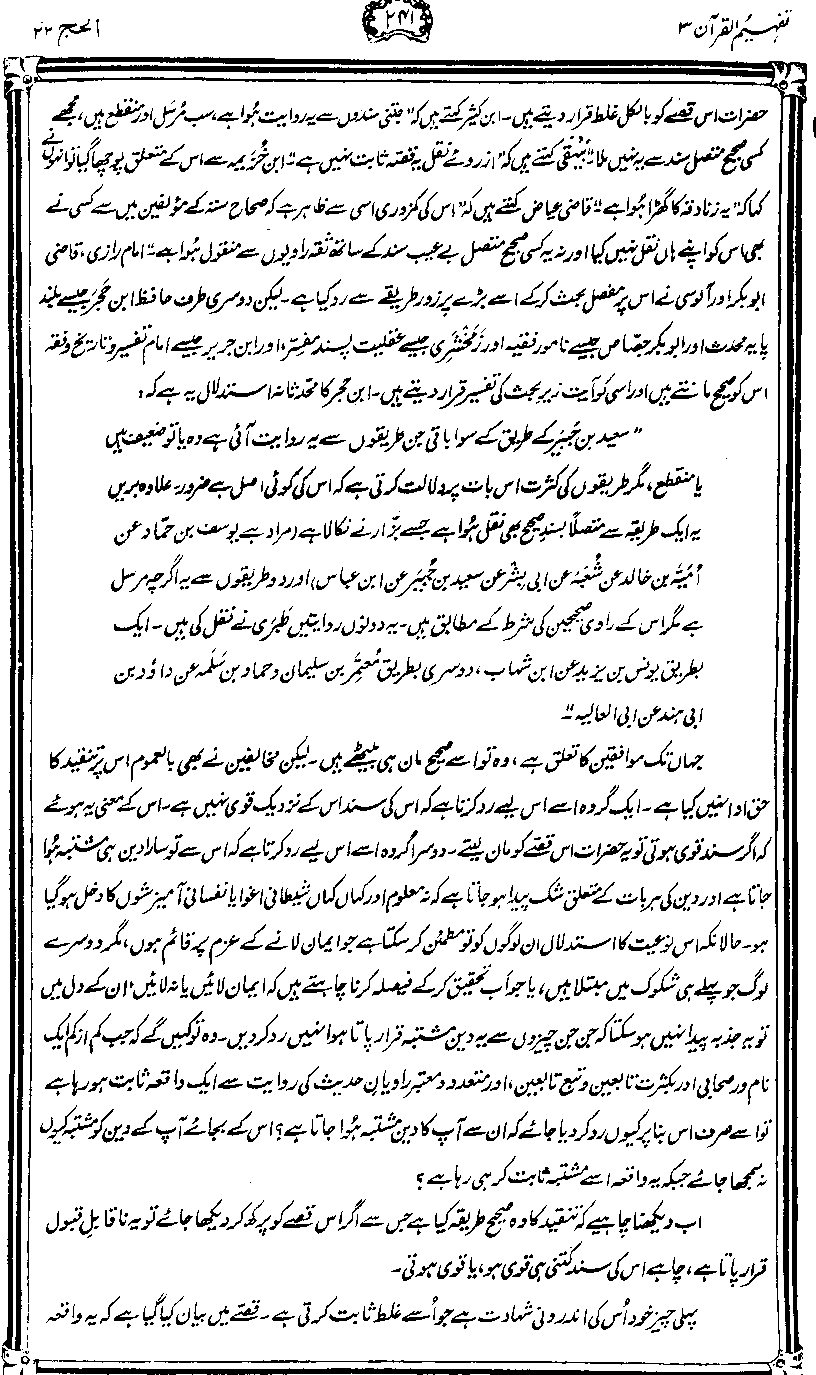 تفہیم القرآن ۳
۲۴۱
الحج ۲۲
حضرات اس قصے کو بالکل غلط قرار دیتے ہیں۔ ابن کثیر کہتے ہیں کہ ”جتنی سندوں سے یہ روایت ہُوا ہے، سب مُرسَل اور منقطع ہیں، مجھے
کسی صحیح متصل سند سے یہ نہیں ملا“ بَیْہقی کہتے ہیں کہ ”از روئے نقل یہ قصّہ ثابت نہیں ہے“ ابن خُزَیمہ سے اس کے متعلق پوچھا گیا تو انہوں نے
کہا کہ ”یہ زنادقہ کا گھڑا ہُوا ہے“ قاضی عیاض کہتے ہیں کہ ”اس کی کمزوری اسی سے ظاہر ہے کہ صحاح ستہ کے مؤلفین میں سے کسی نے
بھی اس کو اپنے ہاں نقل نہیں کیا اور نہ یہ کسی صحیح متصل بے عیب سند کے ساتھ ثقہ راویوں سے منقول ہُوا ہے“ امام رازی، قاضی
ابوبکر اور آلوسی نے اس پر مفصل بحث کرکے اسے بڑے پر زور طریقے سے رد کیا ہے۔ لیکن دوسری طرف حافظ ابن حَجَر جیسے بلند
پایہ محدث اور ابوبکر جصّاص جیسے نامور فقیہ اور زَمَخْشَری جیسے عقلیت پسند مفسّر، اور ابن جریر جیسے امام تفسیر و تاریخ و فقہ
اس کو صحیح مانتے ہیں اور اسی کو آیت زیر بحث کی تفسیر قرار دیتے ہیں۔ ابن حجر کا محدّثانہ استدلال یہ ہے کہ:
”سعید بن جُبَیر کے طریق کے سوا باقی جن طریقوں سے یہ روایت آئی ہے وہ یا تو ضعیف ہیں
یا منقطع، مگر طریقوں کی کثرت اس بات پر دلالت کرتی ہے کہ اس کی کوئی اصل ہے ضرور۔ علاوہ بریں
یہ ایک طریقہ سے متصلاً بسندِ صحیح بھی نقل ہُوا ہے جسے بزّار نے نکالا ہے (مراد ہے یوسف بن حمّاد عن
اُمَیَّہ بن خالد عن شُعْبَہ عن ابی بِشْر عن سعید بن جُبَیر عن ابن عباس) اور دو طریقوں سے یہ اگرچہ مرسل
ہے مگر اس کے راوی صحیحین کی شرط کے مطابق ہیں۔ یہ دونوں روایتیں طَبَری نے نقل کی ہیں۔ ایک
بطریق یونس بن یزید عن ابن شہاب، دوسری بطریق مُعتَمِر بن سلیمان و حماد بن سَلَمہ عن داؤد بن
ابی ہند عن ابی العالیہ“
جہاں تک موافقین کا تعلق ہے، وہ تو اسے صحیح مان ہی بیٹھے ہیں۔ لیکن مخالفین نے بھی بالعموم اس پر تنقید کا
حق ادا نہیں کیا ہے۔ ایک گروہ اسے اس لیے رد کرتا ہے کہ اس کی سند اس کے نزدیک قوی نہیں ہے۔ اس کے معنی یہ ہوئے
کہ اگر سند قوی ہوتی تو یہ حضرات اس قصّے کو مان لیتے۔ دوسرا گروہ اسے اس لیے رد کرتا ہے کہ اس سے تو سارا دین ہی مشتبہ ہُوا
جاتا ہے اور دین کی ہر بات کے متعلق شک پیدا ہو جاتا ہے کہ نہ معلوم اور کہاں کہاں شیطانی اغوا یا نفسانی آمیزشوں کا دخل ہو گیا
ہو۔ حالانکہ اس نوعیت کا استدلال ان لوگوں کو تو مطمئن کر سکتا ہے جو ایمان لانے کے عزم پر قائم ہوں، مگر دوسرے
لوگ جو پہلے ہی شکوک میں مبتلا ہیں، یا جو اب تحقیق کر کے فیصلہ کرنا چاہتے ہیں کہ ایمان لائیں یا نہ لائیں، ان کے دل میں
تو یہ جذبہ پیدا نہیں ہو سکتا کہ جن جن چیزوں سے یہ دین مشتبہ قرار پاتا ہو انہیں رد کر دیں۔ وہ تو کہیں گے کہ جب کم از کم ایک
نام ور صحابی اور بکثرت تابعین و تبع تابعین، اور متعدد معتبر راویانِ حدیث کی روایت سے ایک واقعہ ثابت ہو رہا ہے
تو اسے صرف اس بنا پر کیوں رد کر دیا جائے کہ ان سے آپ کا دین مشتبہ ہُوا جاتا ہے؟ اس کے بجائے آپ کے دین کو مشتبہ کیوں
نہ سمجھا جائے جبکہ یہ واقعہ اسے مشتبہ ثابت کر ہی رہا ہے؟
اب دیکھنا چاہیے کہ تنقید کا وہ صحیح طریقہ کیا ہے جس سے اگر اس قصے کو پرکھ کر دیکھا جائے تو یہ ناقابلِ قبول
قرار پاتا ہے، چاہے اس کی سند کتنی ہی قوی ہو، یا قوی ہوتی۔
پہلی چیز خود اُس کی اندرونی شہادت ہے جو اُسے غلط ثابت کرتی ہے۔ قصّے میں بیان کیا گیا ہے کہ یہ واقعہ